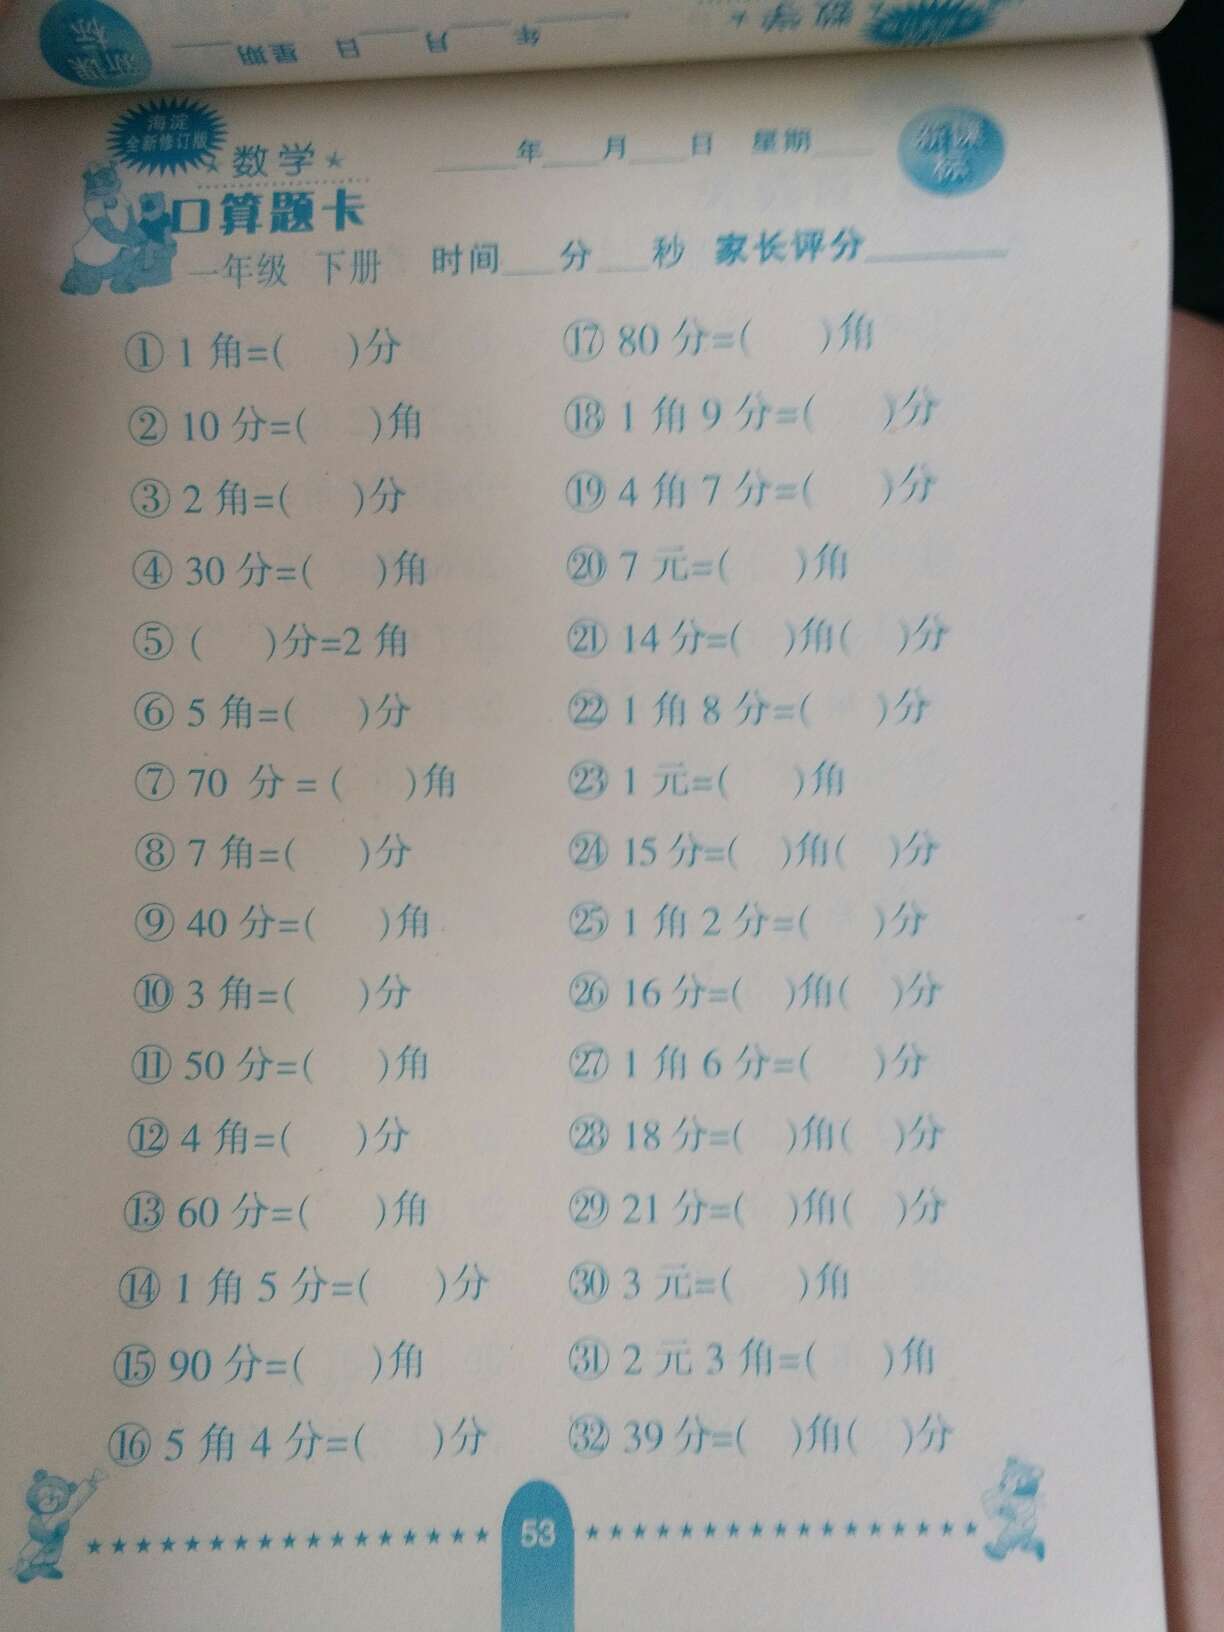 新课标
年 月 日 星期
数学
海淀
全新修订版
数学
年 月 日 星期
新课标
口算题卡
一年级 下册 时间 分 秒 家长评分
①1角=( )分
②10分=( )角
③2角=( )分
④30分=( )角
⑤( )分=2角
⑥5角=( )分
⑦70分=( )角
⑧7角=( )分
⑨40分=( )角
⑩3角=( )分
⑪50分=( )角
⑫4角=( )分
⑬60分=( )角
⑭1角5分=( )分
⑮90分=( )角
⑯5角4分=( )分
⑰80分=( )角
⑱1角9分=( )分
⑲4角7分=( )分
⑳7元=( )角
㉑14分=( )角( )分
㉒1角8分=( )分
㉓1元=( )角
㉔15分=( )角( )分
㉕1角2分=( )分
㉖16分=( )角( )分
㉗1角6分=( )分
㉘18分=( )角( )分
㉙21分=( )角( )分
㉚3元=( )角
㉛2元3角=( )角
㉜39分=( )角( )分
53